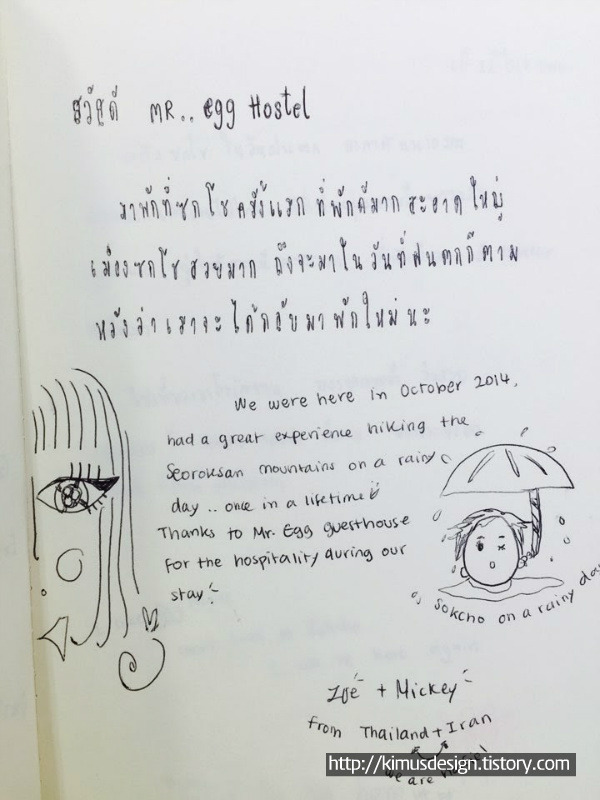 สวัสดี MR.. egg Hostel
มาพักที่ซกโชครั้งแรก ที่พักดีมาก สะอาด ใหญ่
เมืองซกโชสวยมาก ถึงจะมาในวันที่ฝนตกก็ตาม
หวังว่าเราจะได้กลับมาพักใหม่นะ
We were here in October 2014,
had a great experience hiking the
Seoroksan mountains on a rainy
day .. once in a lifetime
Thanks to Mr. Egg guesthouse
for the hospitality during our
stay!
Sokcho on a rainy day
Zoë + Mickey
from Thailand + Iran
we are
http://kimusdesign.tistory.com